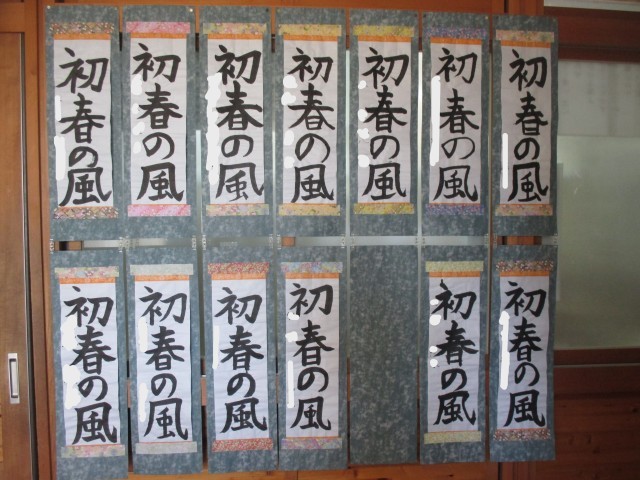 初春の風
初春の風
初春の風
初春の風
初春の風
初春の風
初春の風
初春の風
初春の風
初春の風
初春の風
初春の風
初春の風